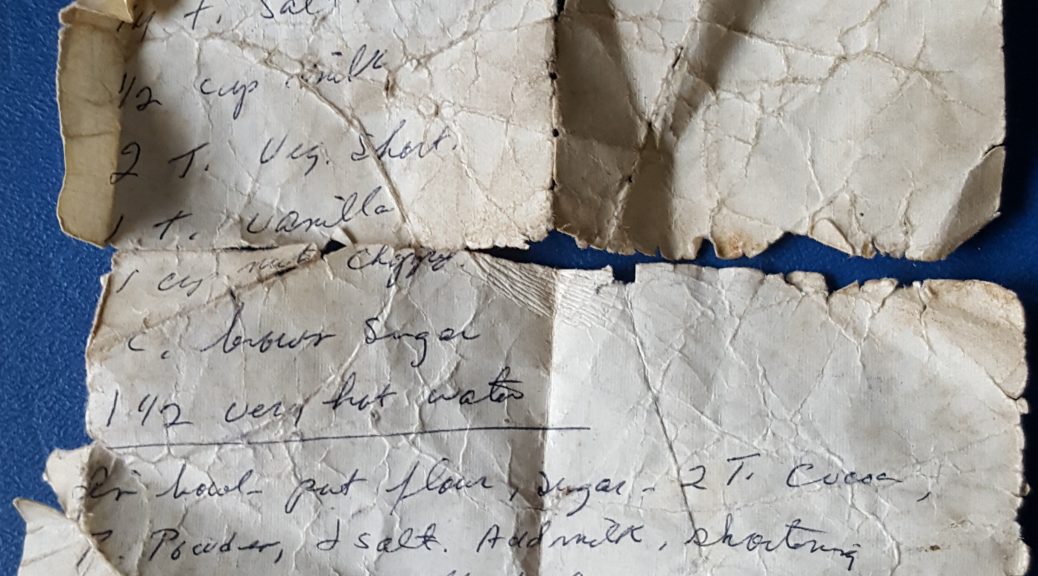 1/4 t. Salt
1/2 cup milk
2 T. Veg. Short.
1 t. vanilla
1 cup nuts
c. brown sugar
1 1/2 very hot water
In bowl put flour, sugar - 2 T. Cocoa,
B. Powder, & salt. Add milk, shortening